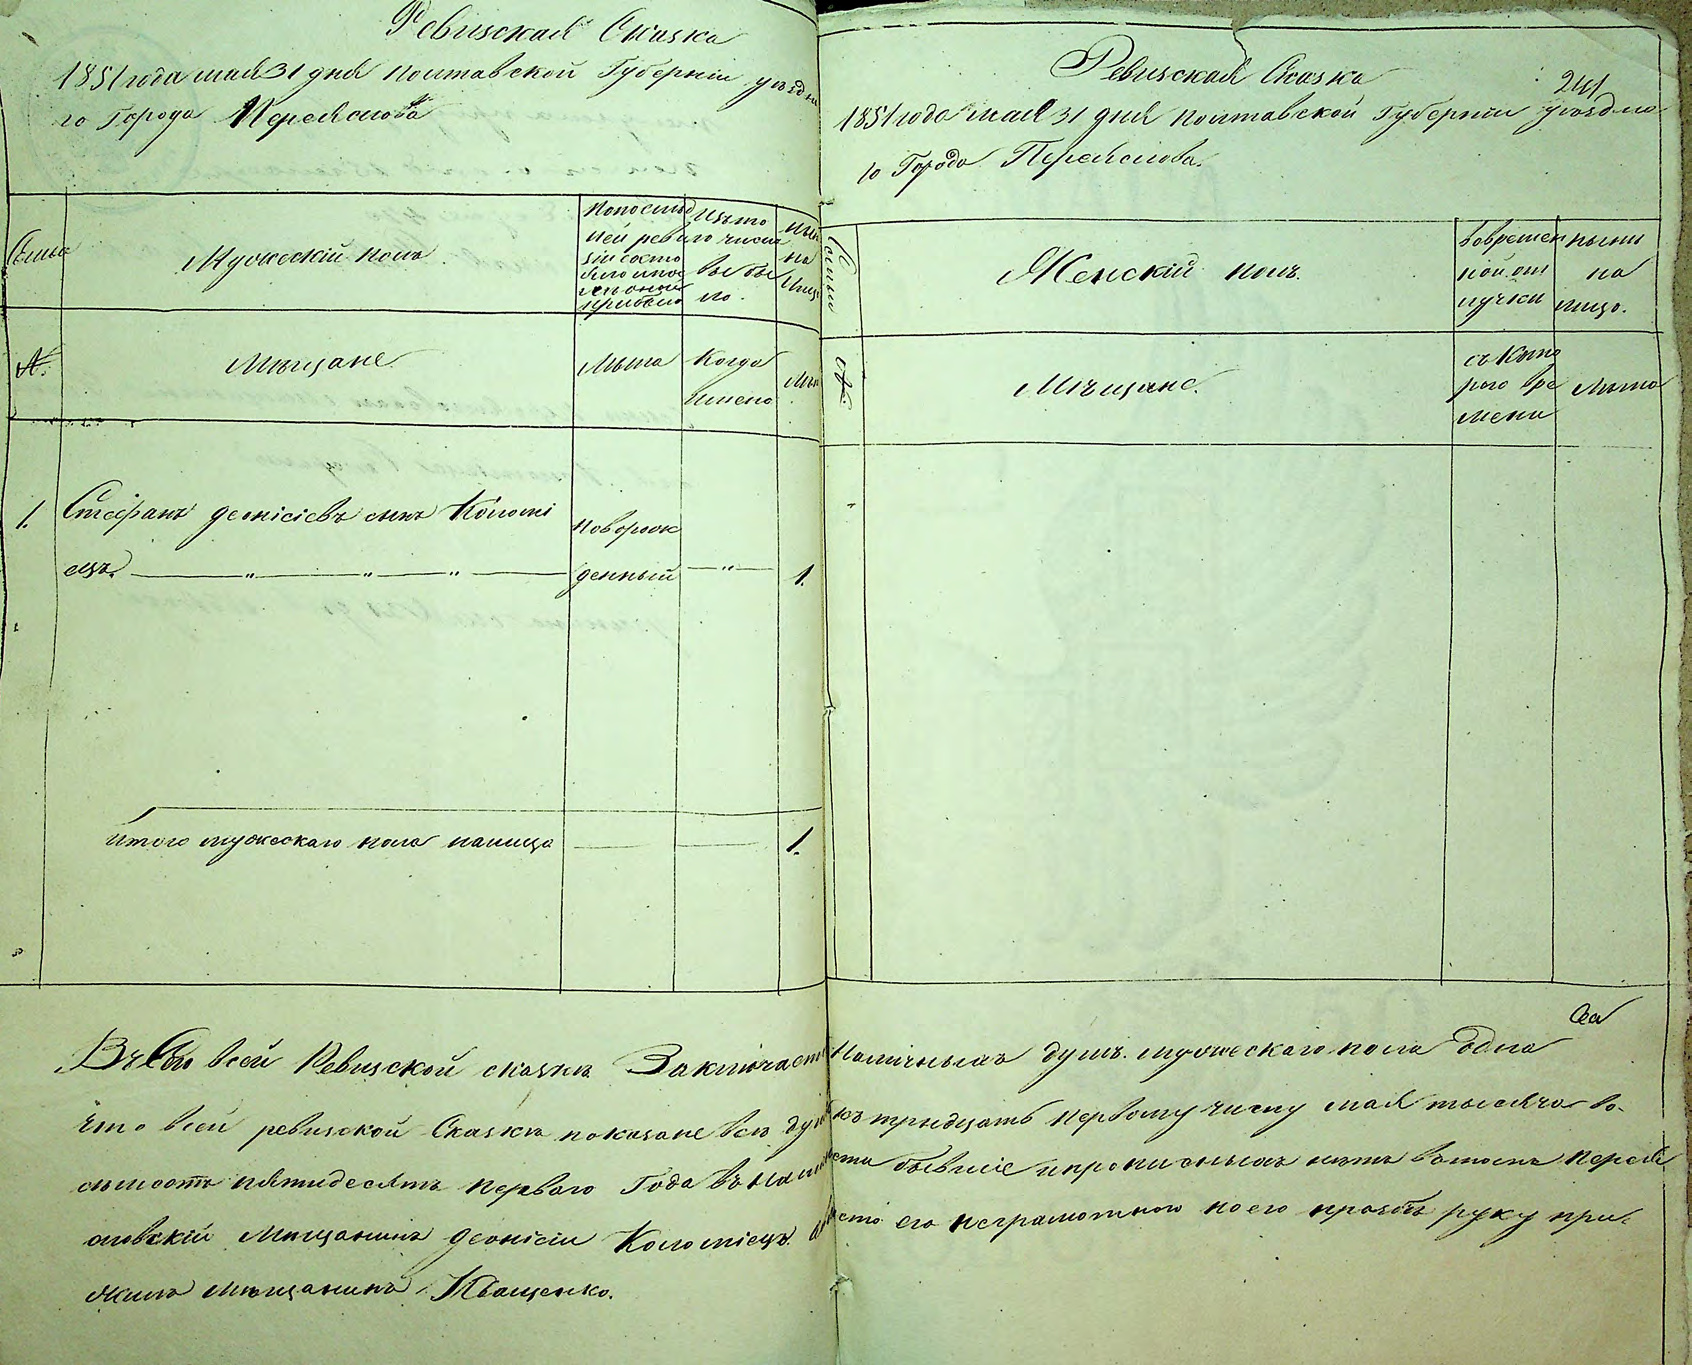 Ревизская Сказка
1851 года мая 31 дня Полтавской Губерніи уѣздна
го Города Переяслова
Семьи
Мужескій полъ.
по послѣд
ней реви
зіи состо
яло и пос
лѣ оной
прибыло
Изъ то
го числа
выбы
ло.
Нын
на
лицо
№.
Мѣщане
Лѣта
Когда
имено
Лѣт
1.
Стефанъ Деонісіевъ сынъ Коломі
ецъ.
новорож
денный
1.
Итого мужескаго пола налицо
1.
Ревизская Сказка
241
1851 года мая 31 дня Полтавской Губерніи уѣздна
го Города Переяслова.
Семьи
Женскій полъ.
во времен
ной от
лучки
ныни
на
лицо.
№.
Мѣщане.
съ кото
рого вре
мени
Лѣта
Въ сей Ревизской сказкѣ Заключает
ся
Наличныхъ душъ мужескаго пола Одна
Что всей ревизской Сказкѣ показане всѣ ду
къ тридцать первому числу мая тысяча во
съмсотъ пятидесятъ перваго Года въ
бывшіе и прописныхъ нѣтъ вотомъ Перея
словскій Мѣщанинъ Деонісій Коломіецъ а
вмѣсто его неграмотного по его прозбѣ руку при
ложилъ мѣщанинъ Иващенко.